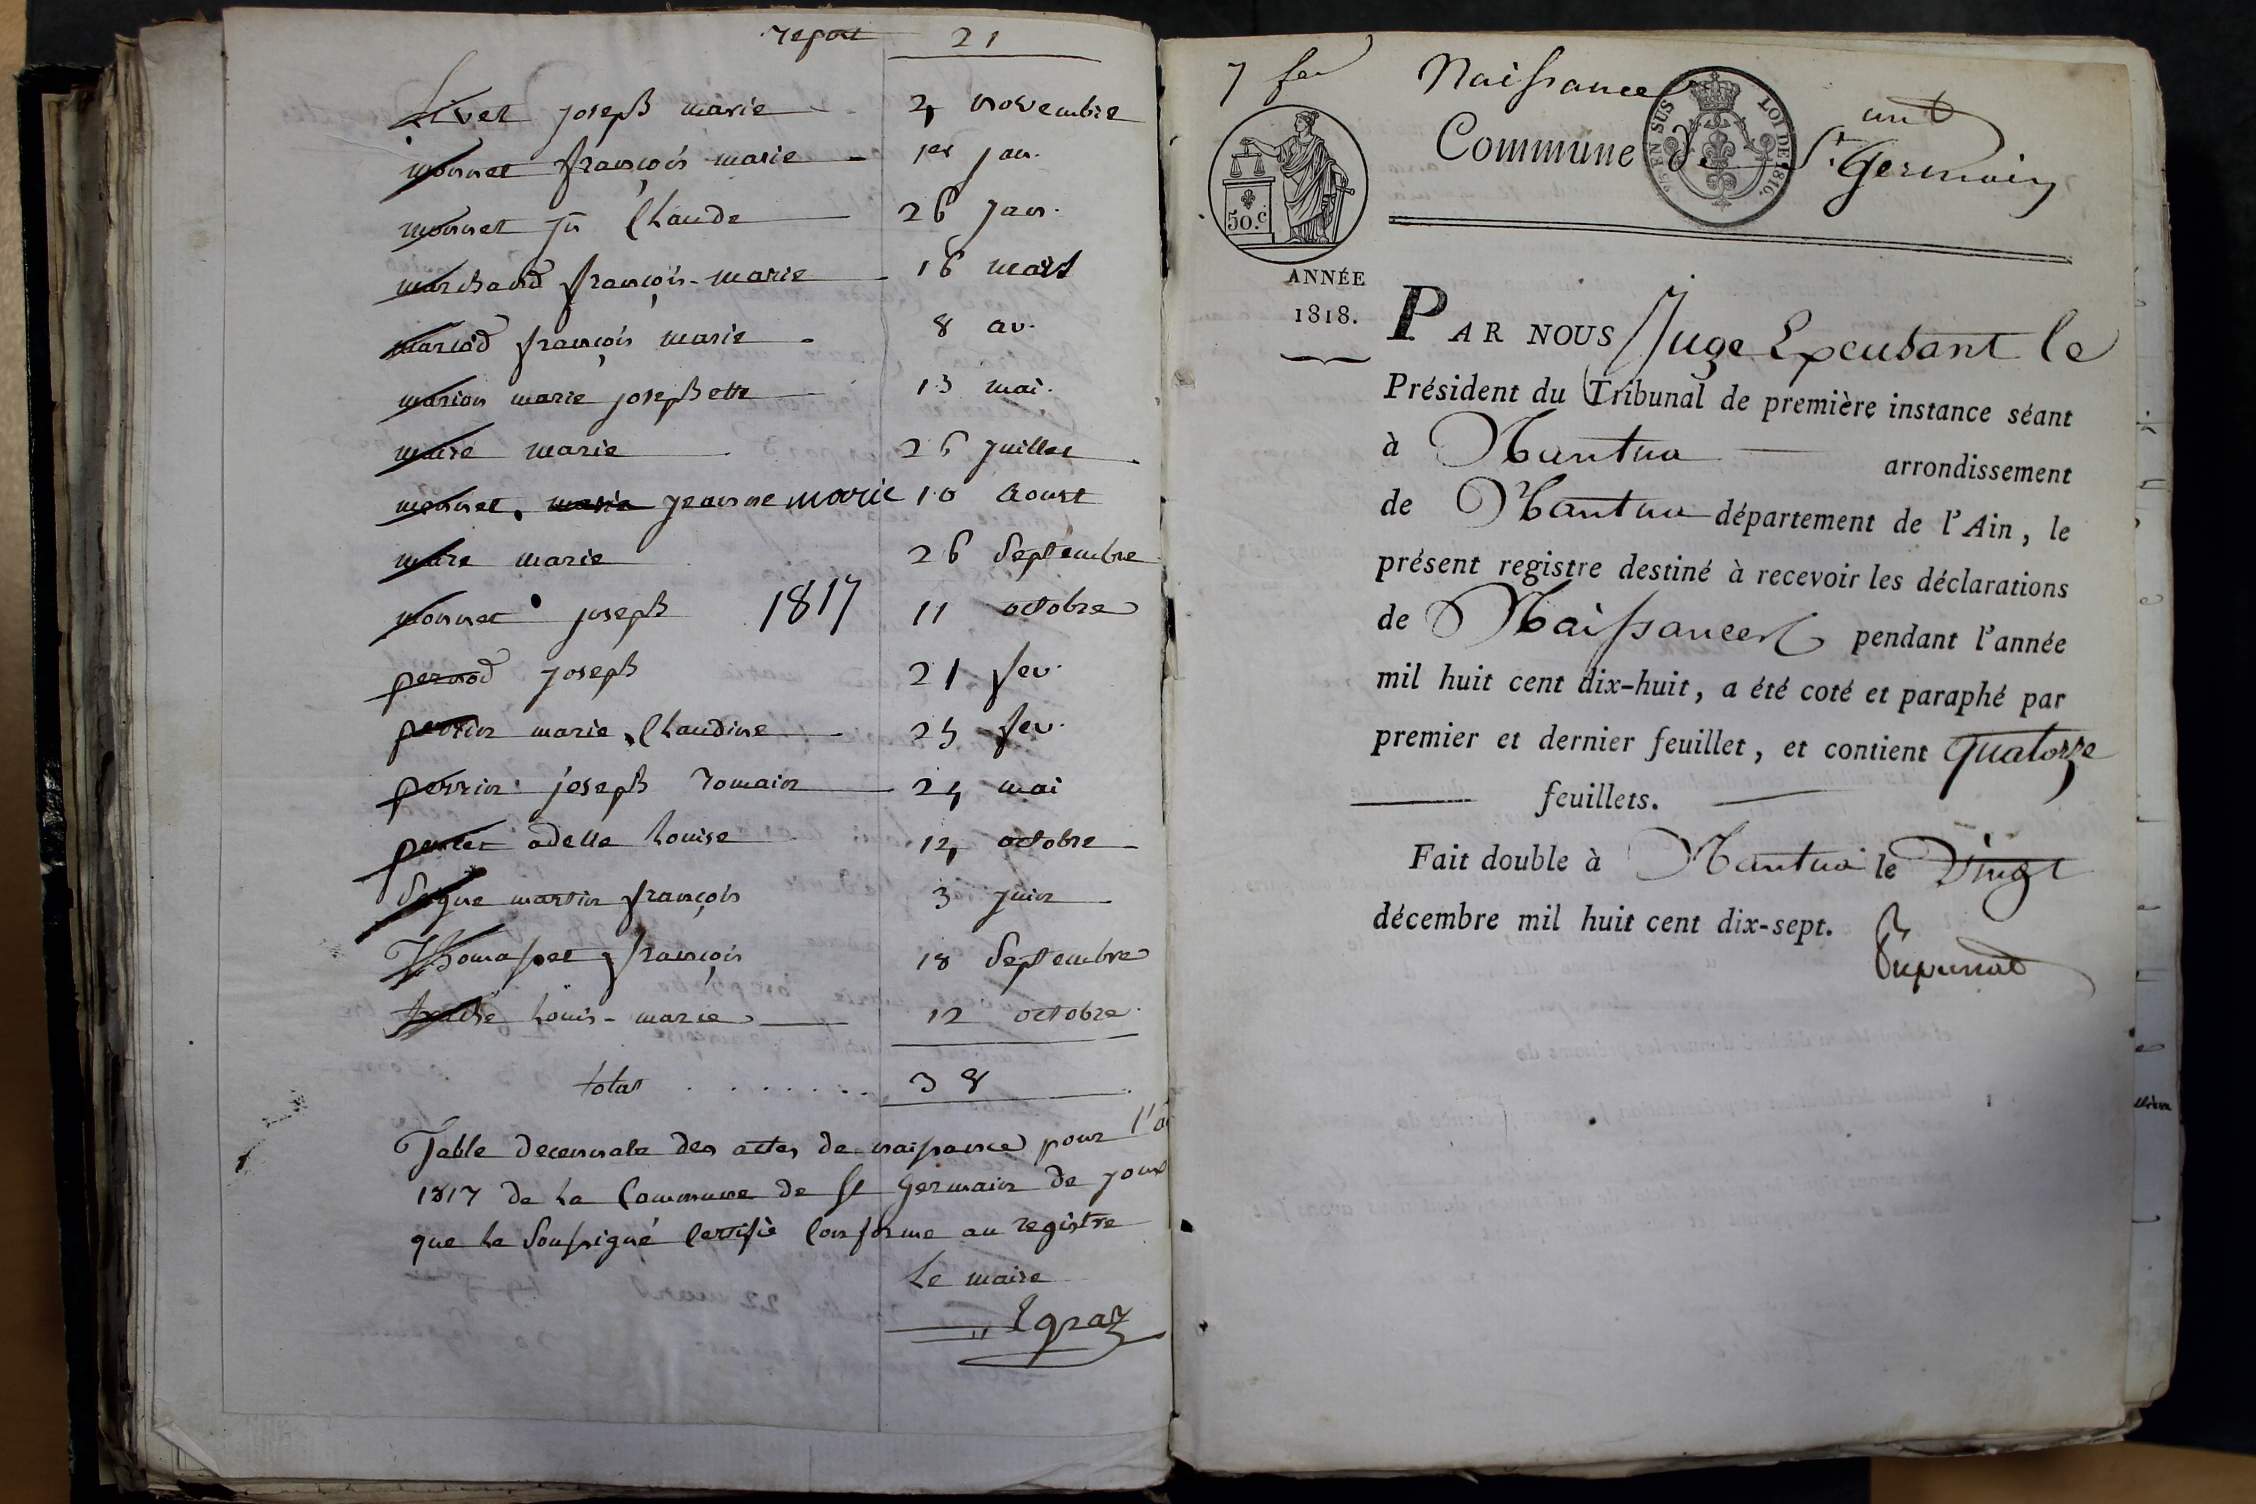 report 21
Livet joseph marie 2 novembre
monnet françois marie 1er jan.
monnet jn Claude 26 janv.
marchand françois-marie 16 mars
mariod françois marie 8 av.
marion marie josephette 13 mai.
maire marie 26 juillet
monnet, marie jeanne marie 10 Aoust
mare marie 26 Septembre
monnet joseph 1817 11 octobre
pernod joseph 21 fev.
perrin marie, Claudine 25 fev.
perrin joseph romain 24 mai
adelle Louise 12 octobre
martin françois 3 juin
Thomasset françois 18 Septembre
Louis-marie 12 octobre
total 38
Table decennale des actes de naissance pour l'a
1817 de la Commune de St Germain de joux
que le Soussigné Certifie Conforme au registre
Le maire
Egraz
7 fer Naissance
Commune de St Germain
EN SUS LOI DE 1816.
50.c
ANNÉE
1818.
PAR NOUS Juge Excusant le
Président du Tribunal de première instance séant
à Nantua arrondissement
de Nantua département de l'Ain, le
présent registre destiné à recevoir les déclarations
de Naissances pendant l'année
mil huit cent dix-huit, a été coté et paraphé par
premier et dernier feuillet, et contient quatorze
feuillets.
Fait double à Nantua le vingt
décembre mil huit cent dix-sept.